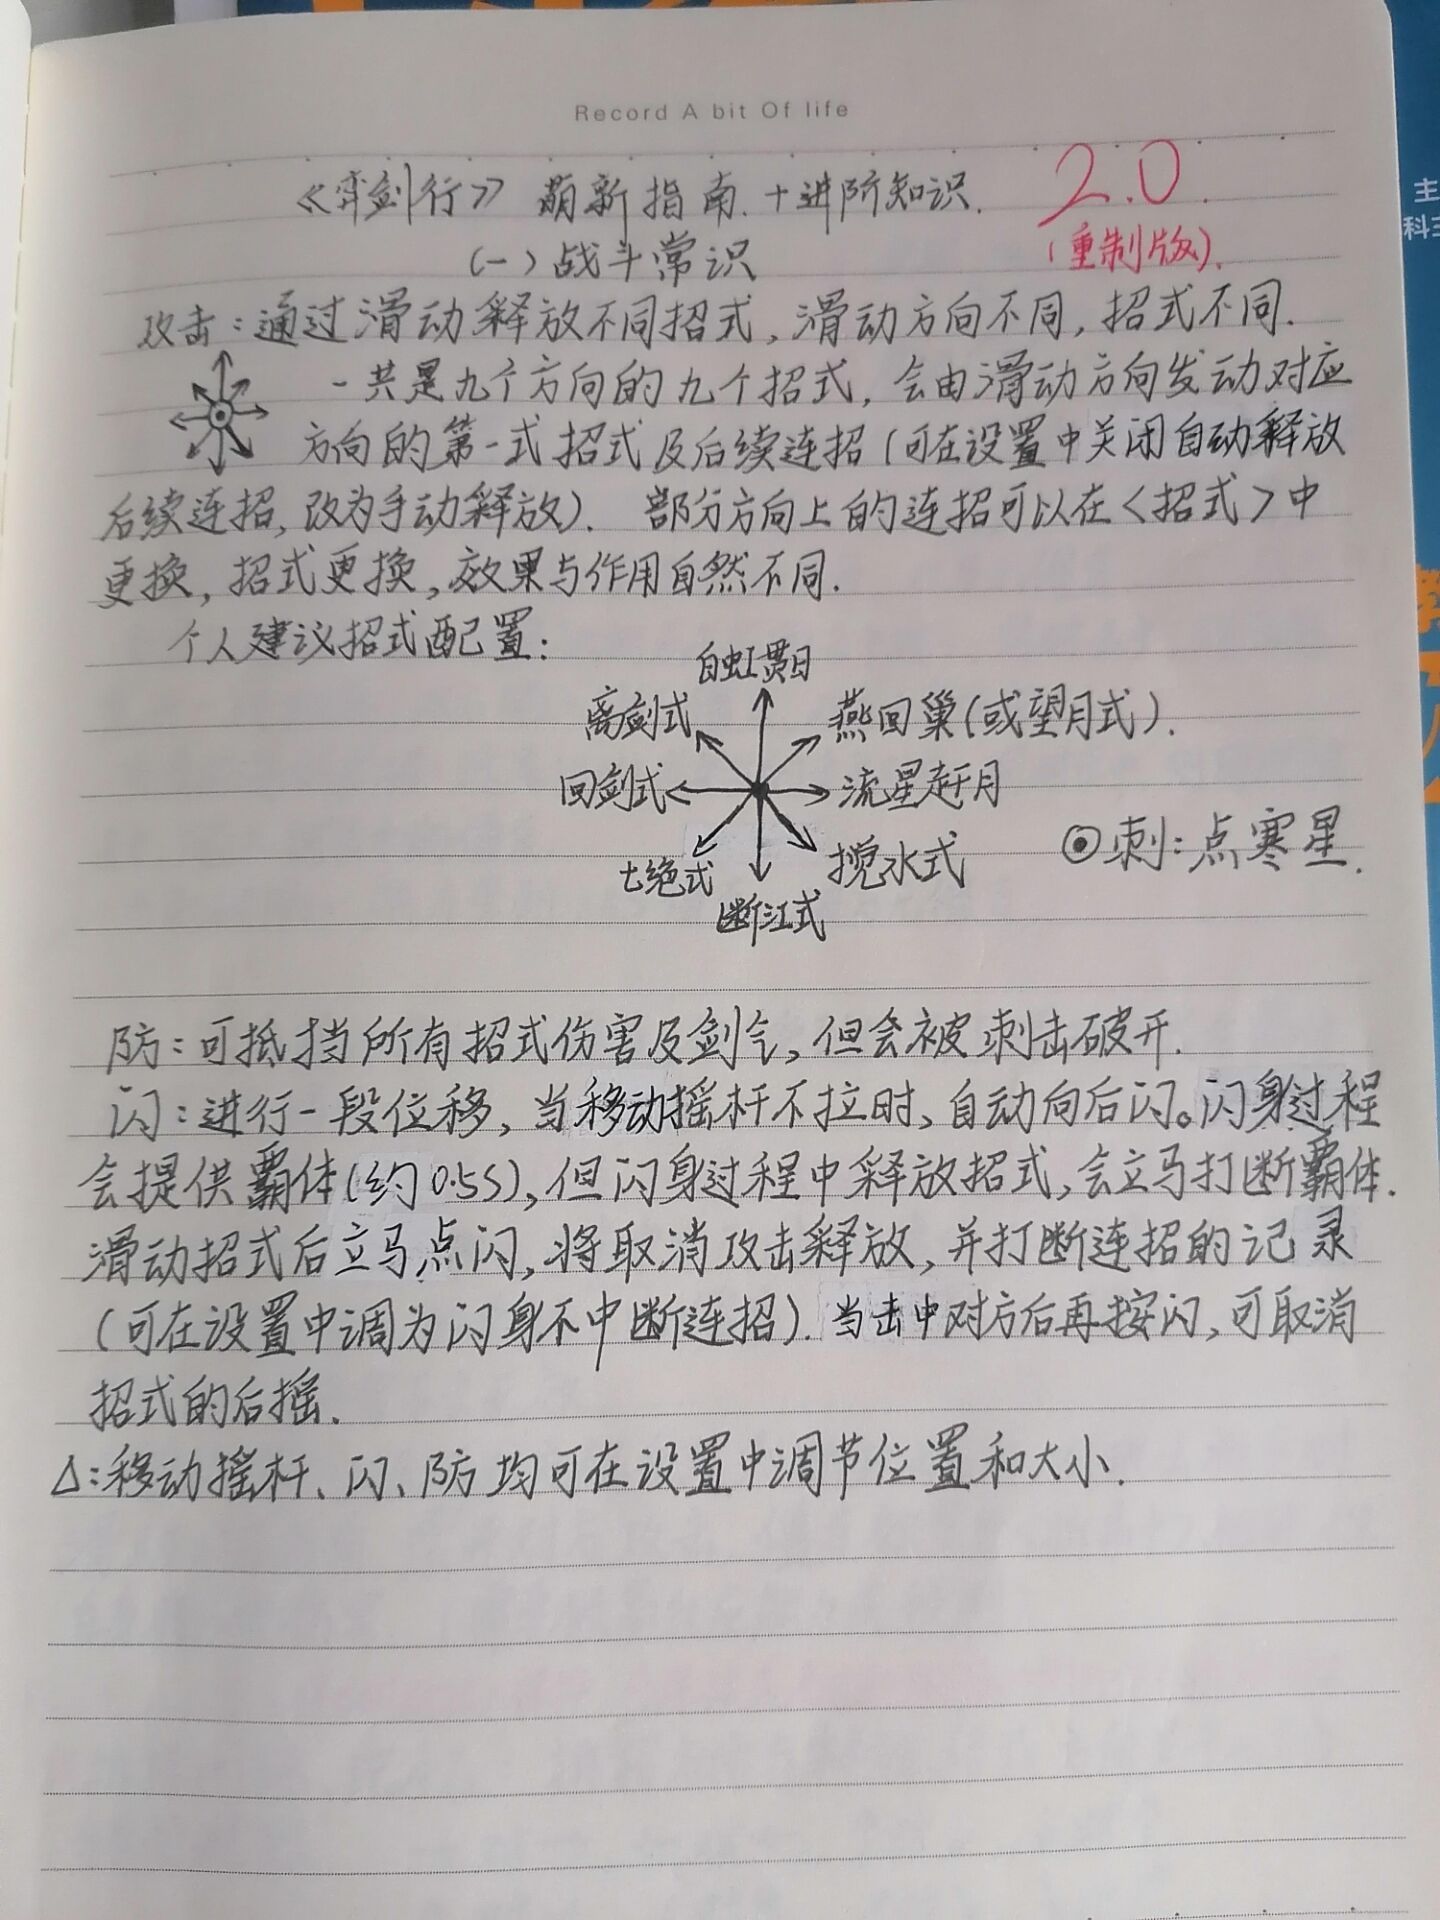 Record A bit Of life
《弈剑行》萌新指南.十进阶知识. 2.0.
(重制版).
(一)战斗常识
攻击:通过滑动释放不同招式,滑动方向不同,招式不同.
一共是九个方向的九个招式,会由滑动方向发动对应
方向的第一式招式及后续连招(可在设置中关闭自动释放
后续连招,改为手动释放). 部分方向上的连招可以在<招式>中
更换,招式更换,效果与作用自然不同.
个人建议招式配置:
白虹贯日
离剑式
燕回巢(或望月式).
回剑式
流星赶月
⊙刺:点寒星.
七绝式
搅水式
断江式
防:可抵挡所有招式伤害及剑气,但会被刺击破开.
闪:进行一段位移,当移动摇杆不拉时,自动向后闪。闪身过程
会提供霸体(约0.5S),但闪身过程中释放招式,会立马打断霸体.
滑动招式后立马点闪,将取消攻击释放,并打断连招的记录
(可在设置中调为闪身不中断连招).当击中对方后再按闪,可取消
招式的后摇.
△:移动摇杆、闪、防均可在设置中调节位置和大小.
主
科